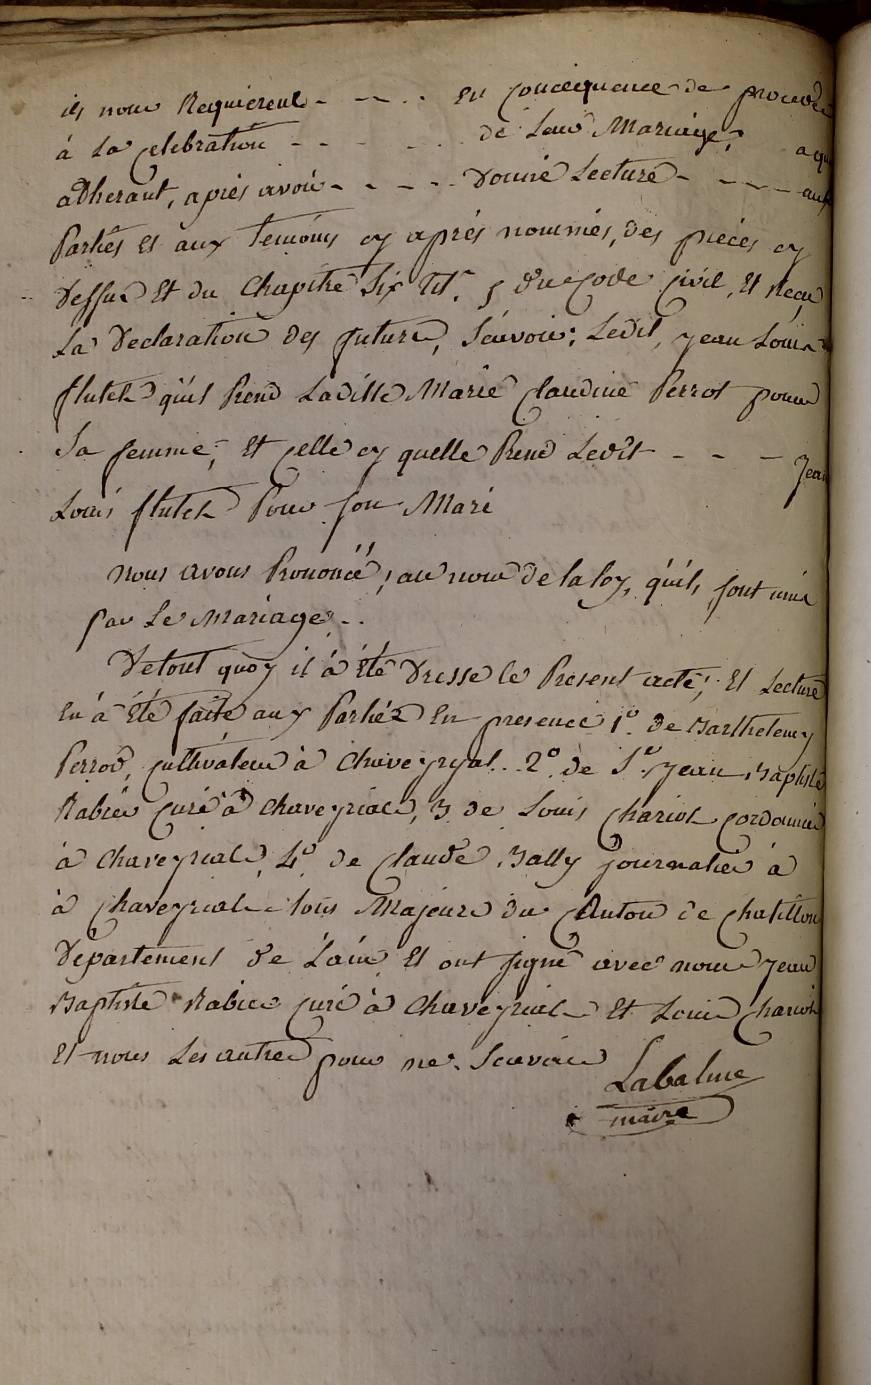 ils nous Requierent - - - - En Concequence de proceder
à La Celebration - - - - - de Leur Mariage, a quoi
adherant, après avoir - - - - - Donné Lecture - - - - aux
Partiés Et aux Temoins cy aprés nommés, des piecés cy
Dessus Et du Chapitre Six Titre 5 du Code Civil, Et Reçu
La Declaration des futurs, Scavoir; Ledit, jean Louis
flutet qu'il Prend Laditte Marie Claudine Perrot pour
Sa femme, Et Celle cy quelle Prend Ledit - - - jean
Louis flutet Pour son Mari
Nous avons Prononcé, au nom de la loy, qu'ils sont unis
par Le Mariage - -
De tout quoy il à Eté Dressé le Present acté, Et Lecture
En à Eté faite aux Partiés En presence 1º. de Barthelemy
Perrod, Cultivateur à Chaveyriat. 2º. de Sr. jean Baptiste
Rabier Curé à Chaveyriat, 3 de Louis Chariot Cordonnier
à Chaveyriat, 4º de Claude Bally journalier à
à Chaveyriat tous Majeurs du Canton de Chatillon
Département de L'ain Et ont signé avec nous jean
Baptiste Rabier Curé à Chaveyriat Et Louis Chariot
Et nous Les autres pour ne Scavoir
Labalme
maire